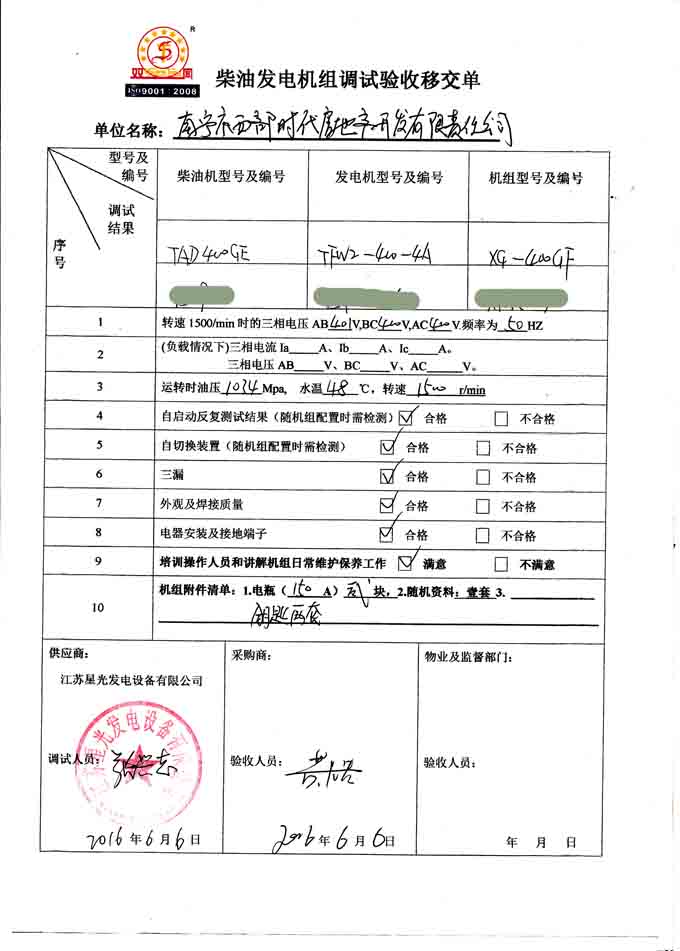 R
双 固
ISO9001:2008
柴油发电机组调试验收移交单
单位名称：南宁市西部时代房地产开发有限责任公司
型号及编号 调试结果 序号
柴油机型号及编号 发电机型号及编号 机组型号及编号
TAD400GE TFW2-400-4A XG-400GF
1 转速 1500/min 时的三相电压 AB 401 V,BC 400 V,AC 400 V.频率为 50 HZ
2 (负载情况下)三相电流 Ia____A、Ib____A、Ic____A。
三相电压 AB____V、BC____V、AC____V。
3 运转时油压 1034 Mpa, 水温 48 ℃，转速 1500 r/min
4 自启动反复测试结果（随机组配置时需检测）☑ 合格 □ 不合格
5 自切换装置（随机组配置时需检测） ☑ 合格 □ 不合格
6 三漏 ☑ 合格 □ 不合格
7 外观及焊接质量 ☑ 合格 □ 不合格
8 电器安装及接地端子 ☑ 合格 □ 不合格
9 培训操作人员和讲解机组日常维护保养工作 ☑ 满意 □ 不满意
10 机组附件清单：1.电瓶（ 150 A）贰块，2.随机资料：壹套 3.
钥匙两套
供应商： 采购商： 物业及监督部门：
江苏星光发电设备有限公司
江苏星光发电设备有限公司
调试人员： 验收人员： 验收人员：
2016年6月6日 2016年6月6日 年 月 日